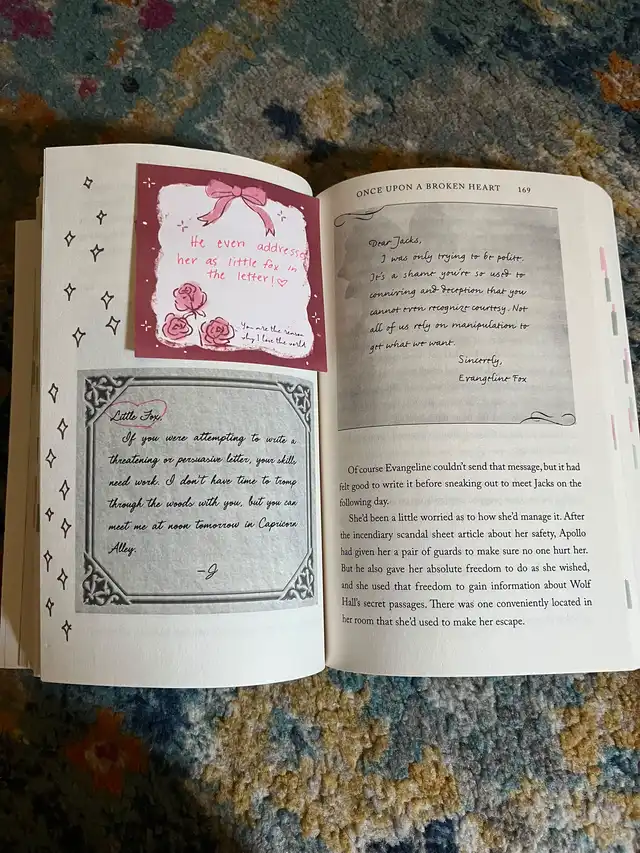 He even addressed
her as little fox in
the letter!♡
You are the reason
why I love the world
Little Fox,
If you were attempting to write a
threatening or persuasive letter, your skills
need work. I don't have time to tromp
through the woods with you, but you can
meet me at noon tomorrow in Capricorn
Alley.
—J
ONCE UPON A BROKEN HEART 169
Dear Jacks,
I was only trying to be polite.
It's a shame you're so used to
conniving and deception that you
cannot even recognize courtesy. Not
all of us rely on manipulation to
get what we want.
Sincerely,
Evangeline Fox
Of course Evangeline couldn't send that message, but it had
felt good to write it before sneaking out to meet Jacks on the
following day.
She'd been a little worried as to how she'd manage it. After
the incendiary scandal sheet article about her safety, Apollo
had given her a pair of guards to make sure no one hurt her.
But he also gave her absolute freedom to do as she wished,
and she used that freedom to gain information about Wolf
Hall's secret passages. There was one conveniently located in
her room that she'd used to make her escape.